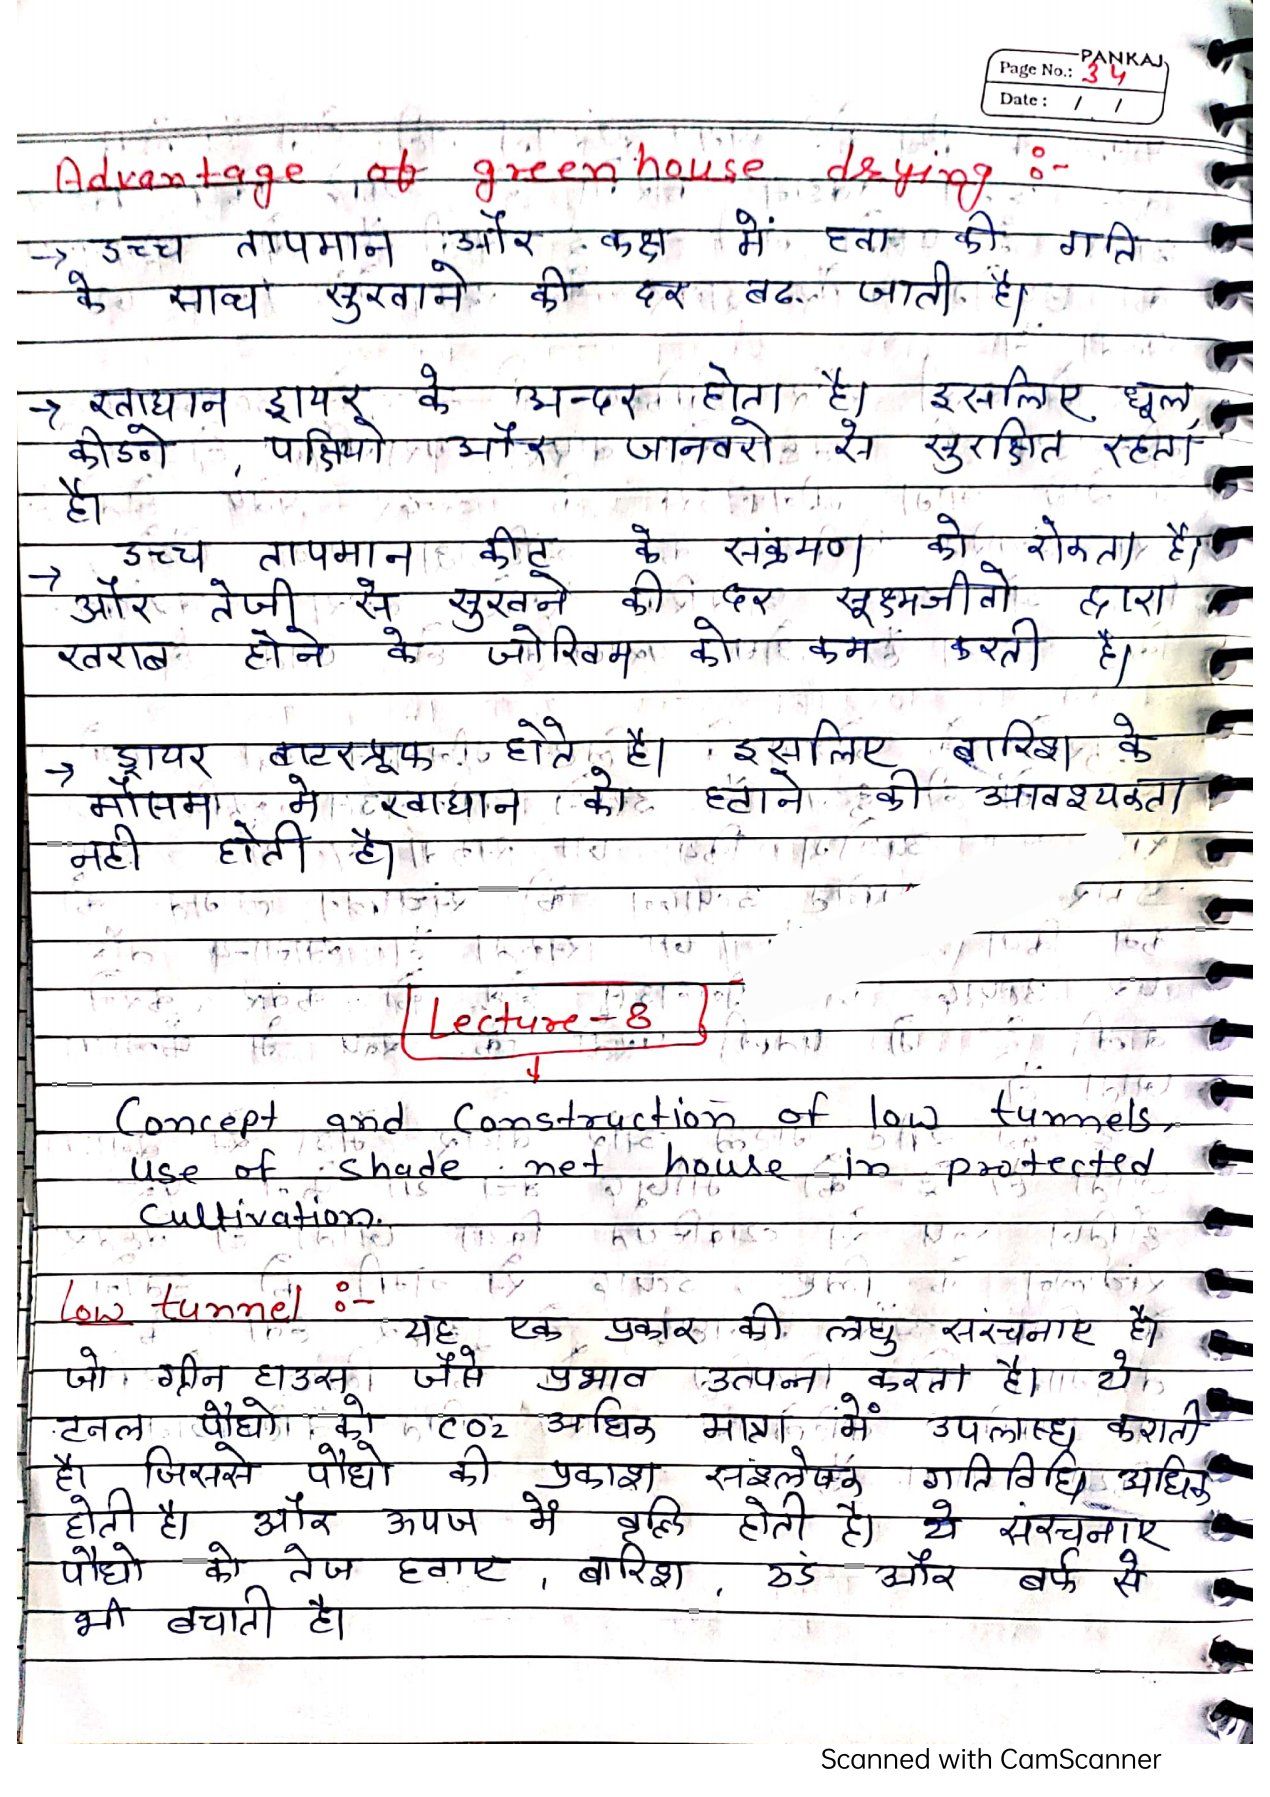 PANKAJ
Page No.: 34
Date : / /
Advantage of greenhouse drying :-
→ उच्च तापमान और कक्ष में हवा की गति
के साथ सुखाने की दर बढ जाती है।
→ खाद्यान ड्रायर के अन्दर होता है। इसलिए धूल
कीडो , पक्षियो और जानवरो से सुरक्षित रहता
है।
→ उच्च तापमान कीट के संक्रमण को रोकता है।
और तेजी से सुखने की दर सूक्ष्मजीवो द्वारा
खराब होने के जोखिम को कम करती है।
→ ड्रायर वाटरप्रूफ होते है। इसलिए बारिश के
मौसम मे खाद्यान को हटाने की आवश्यकता
नही होती है।
Lecture - 8
Concept and Construction of low tunnels,
use of shade net house in protected
cultivation.
Low tunnel :-
यह एक प्रकार की लघु संरचनाए है।
जो ग्रीन हाउस जैसे प्रभाव उत्पन्न करता है। ये
टनल पौधो को CO2 अधिक मात्रा में उपलब्ध कराती
है। जिससे पौधो की प्रकाश संश्लेषक गतिविधि अधिक
होती है। और ऊपज में वृद्धि होती है। ये संरचनाए
पौधो को तेज हवाए , बारिश , ठंड और बर्फ से
भी बचाती है।
Scanned with CamScanner